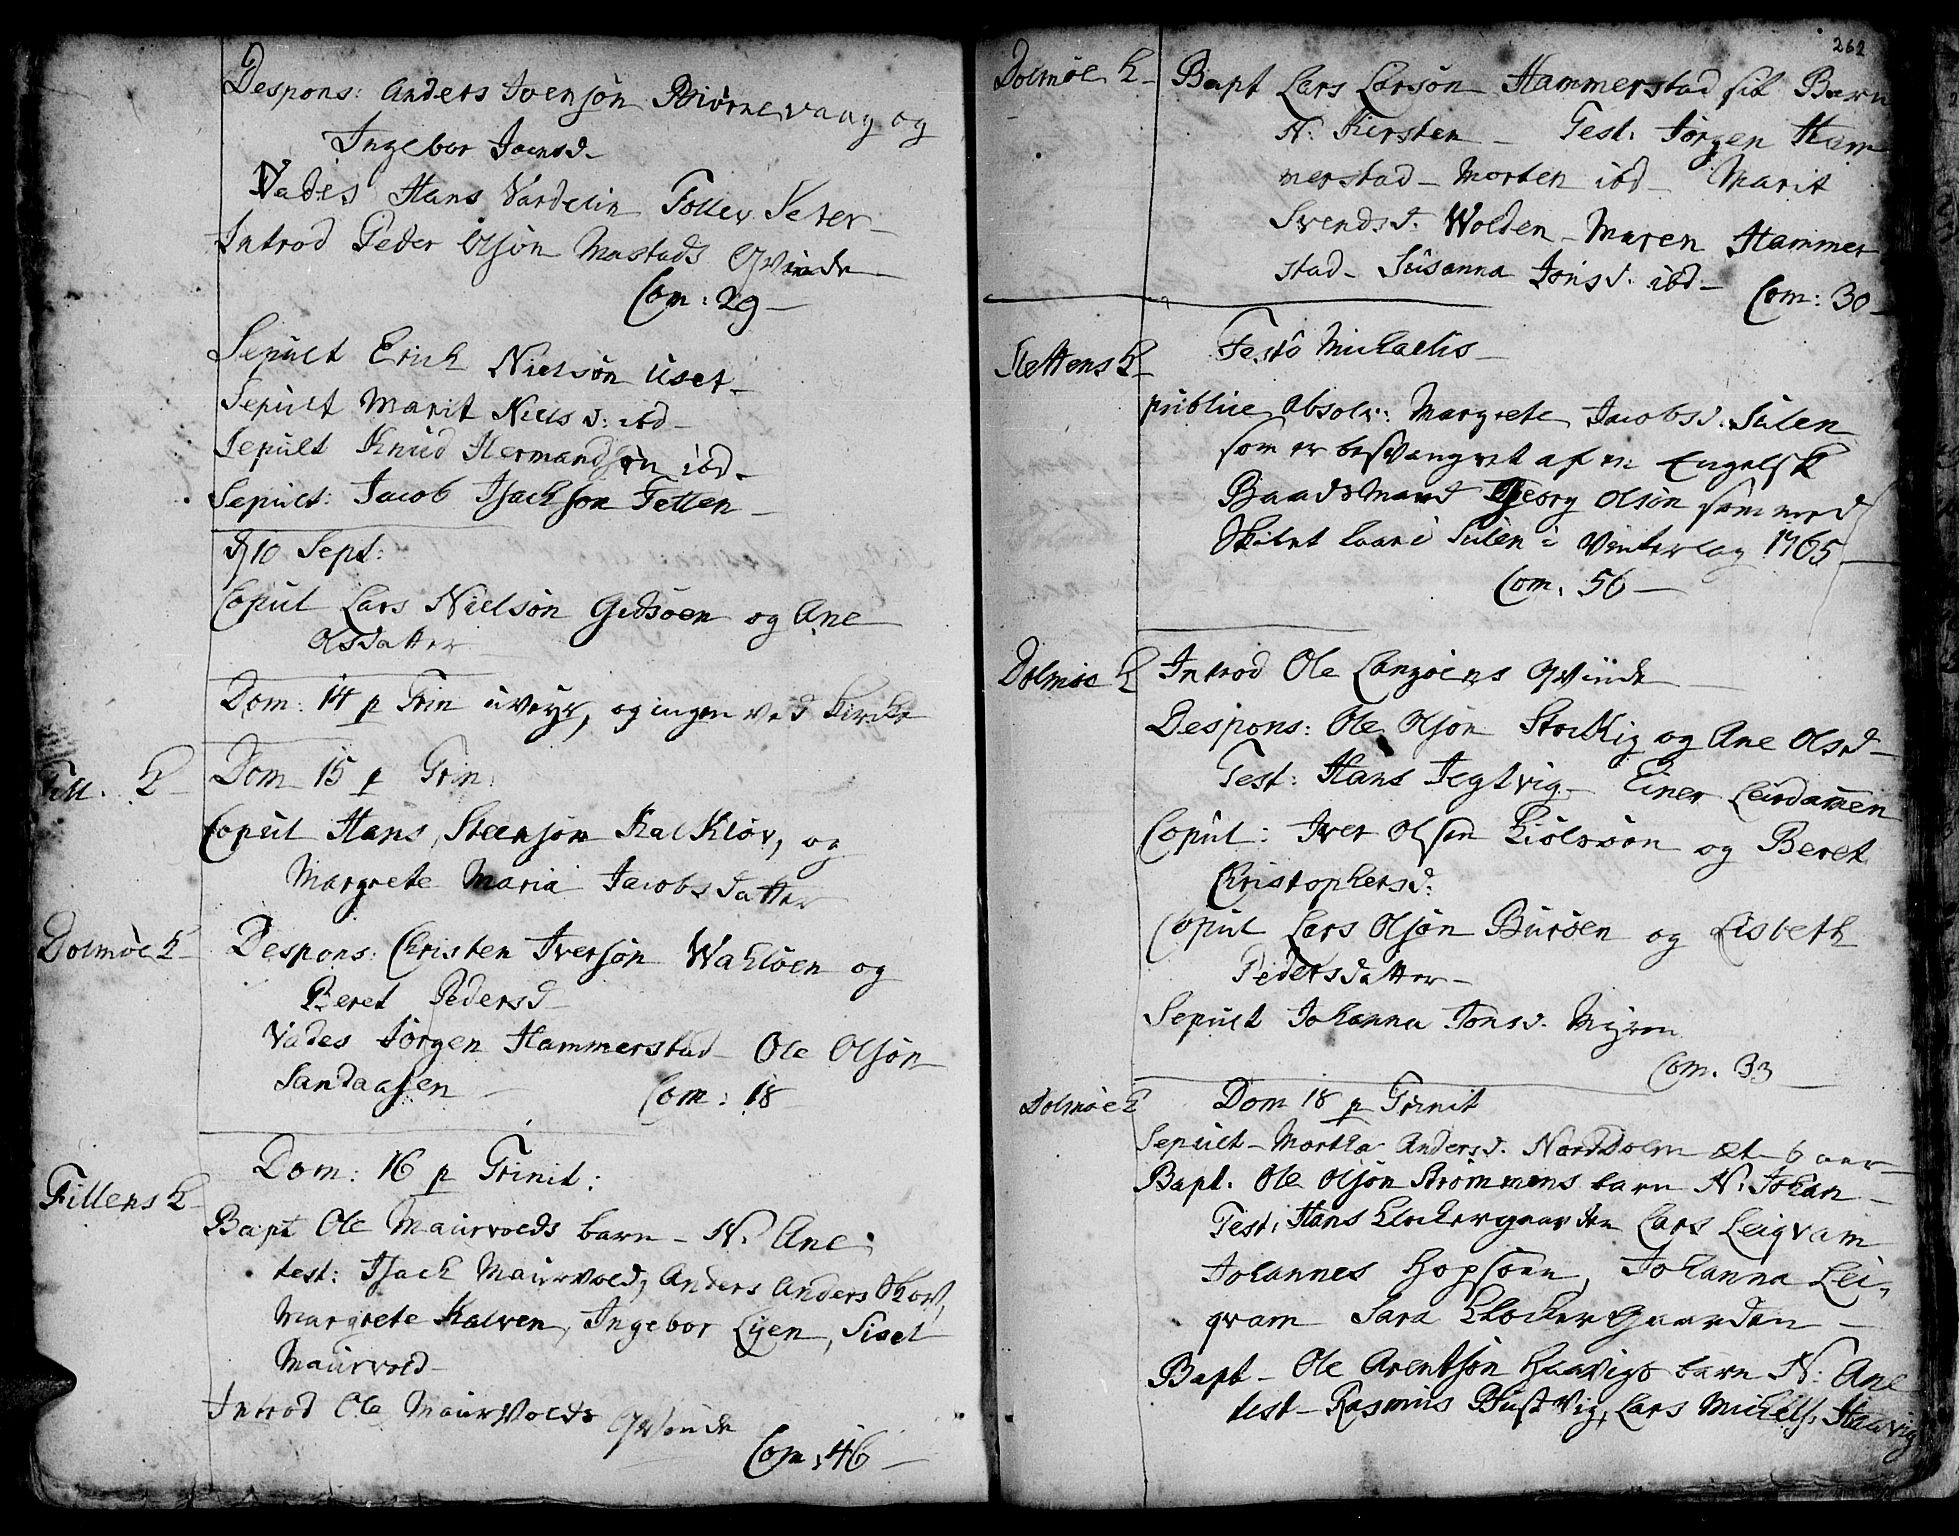 Despons: Anders Ivensøn Biörnevaag og
Ingebor Joensd
Vades Hans Vardelin Follev. Seter
Introd Peder Olsøn Mastads Qvinde
Com: 29
Sepult Erich Nielsøn Uset
Sepult Marit Niels d: ibd
Sepult Knud Hermandsøn ibd
Sepult: Jacob Isachsøn Fetten
d 10 Sept:
Copul Lars Nielsøn Gidsøen og Ane
Olsdatter
Dom: 14 p Trin uveyr, og ingen ved Kircke
Fill. K
Dom 15 p Trin:
Copul Hans Steensøn Kalkløv, og
Margrete Maria Jacobsdatter
Dolmöe K
Despons: Christen Iversøn Wahlöen og
Beret Pedersd
Vades Jørgen Hammerstad Ole Olsøn
Sandaasen
Com: 18
Dom: 16 p Trinit:
Fillens K
Bapt Ole Maurvolds barn N. Ane
test: Isach Maurvold, Anders Anders Skov,
Margrete Kalven, Ingebor Lyen, Sisel
Maurvold
Introd Ole Maurvolds Qvinde
Com: 46
262
Dolmöe K
Bapt Lars Larsøn Hammerstad sit Barn
N. Kirsten Test. Jørgen Ham
merstad Morten ibd Marit
Svendsd. Wolden Maren Hammer
stad Susanna Jonsd. ibd Com: 30
Festo Michaelis
Slettens K
publice Absolv: Margrete Jacobsd. Sulen
som er besvangret af en Engelsk
Baadsmand Georg Olsøn som med
Skibet laae i Sulen i Vinterlag 1765
Com. 56
Dolmöe K
Introd Ole Langöens Qvinde
Despons: Ole Olsøn Stockig og Ane Olsd
Test: Hans Jegtvig Einer Leirdamen
Copul: Iver Olsøn Kiölsøen og Beret
Christophersd:
Copul Lars Olsøn Buröen og Lisbeth
Pedersdatter
Sepult Johanna Jonsd. Myren
Com. 33
Dolmöe K
Dom 18 p Trinit
Sepult Martha Andersd. Norddolm æt 6 aar
Bapt. Ole Olsøn Strömmens barn N. Johan
Test: Hans Klockergaarden Lars Leiqvam
Johannes Hopsöen, Johanna Lei,
qvam Sara Klockergaarden
Bapt Ole Arentsøn Haavigs barn N: Ane
test Rasmus Bustvig, Lars Michels. Haavig